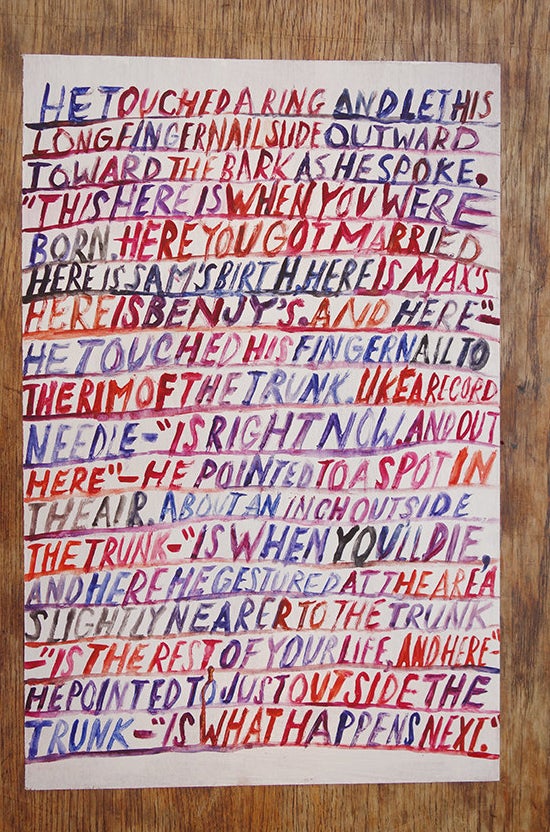 HE TOUCHED A RING AND LET HIS
LONG FINGERNAIL SLIDE OUTWARD
TOWARD THE BARK AS HE SPOKE.
"THIS HERE IS WHEN YOU WERE
BORN. HERE YOU GOT MARRIED
HERE IS SAM'S BIRTH. HERE IS MAX'S
HERE IS BENJY'S. AND HERE"-
HE TOUCHED HIS FINGERNAIL TO
THE RIM OF THE TRUNK. LIKE A RECORD
NEEDLE-"IS RIGHT NOW. AND OUT
HERE"-HE POINTED TO A SPOT IN
THE AIR. ABOUT AN INCH OUTSIDE
THE TRUNK-"IS WHEN YOU'LL DIE,
AND HERE HE GESTURED AT THE AREA
SLIGHTLY NEARER TO THE TRUNK
-"IS THE REST OF YOUR LIFE. AND HERE"-
HE POINTED TO JUST OUTSIDE THE
TRUNK-"IS WHAT HAPPENS NEXT."